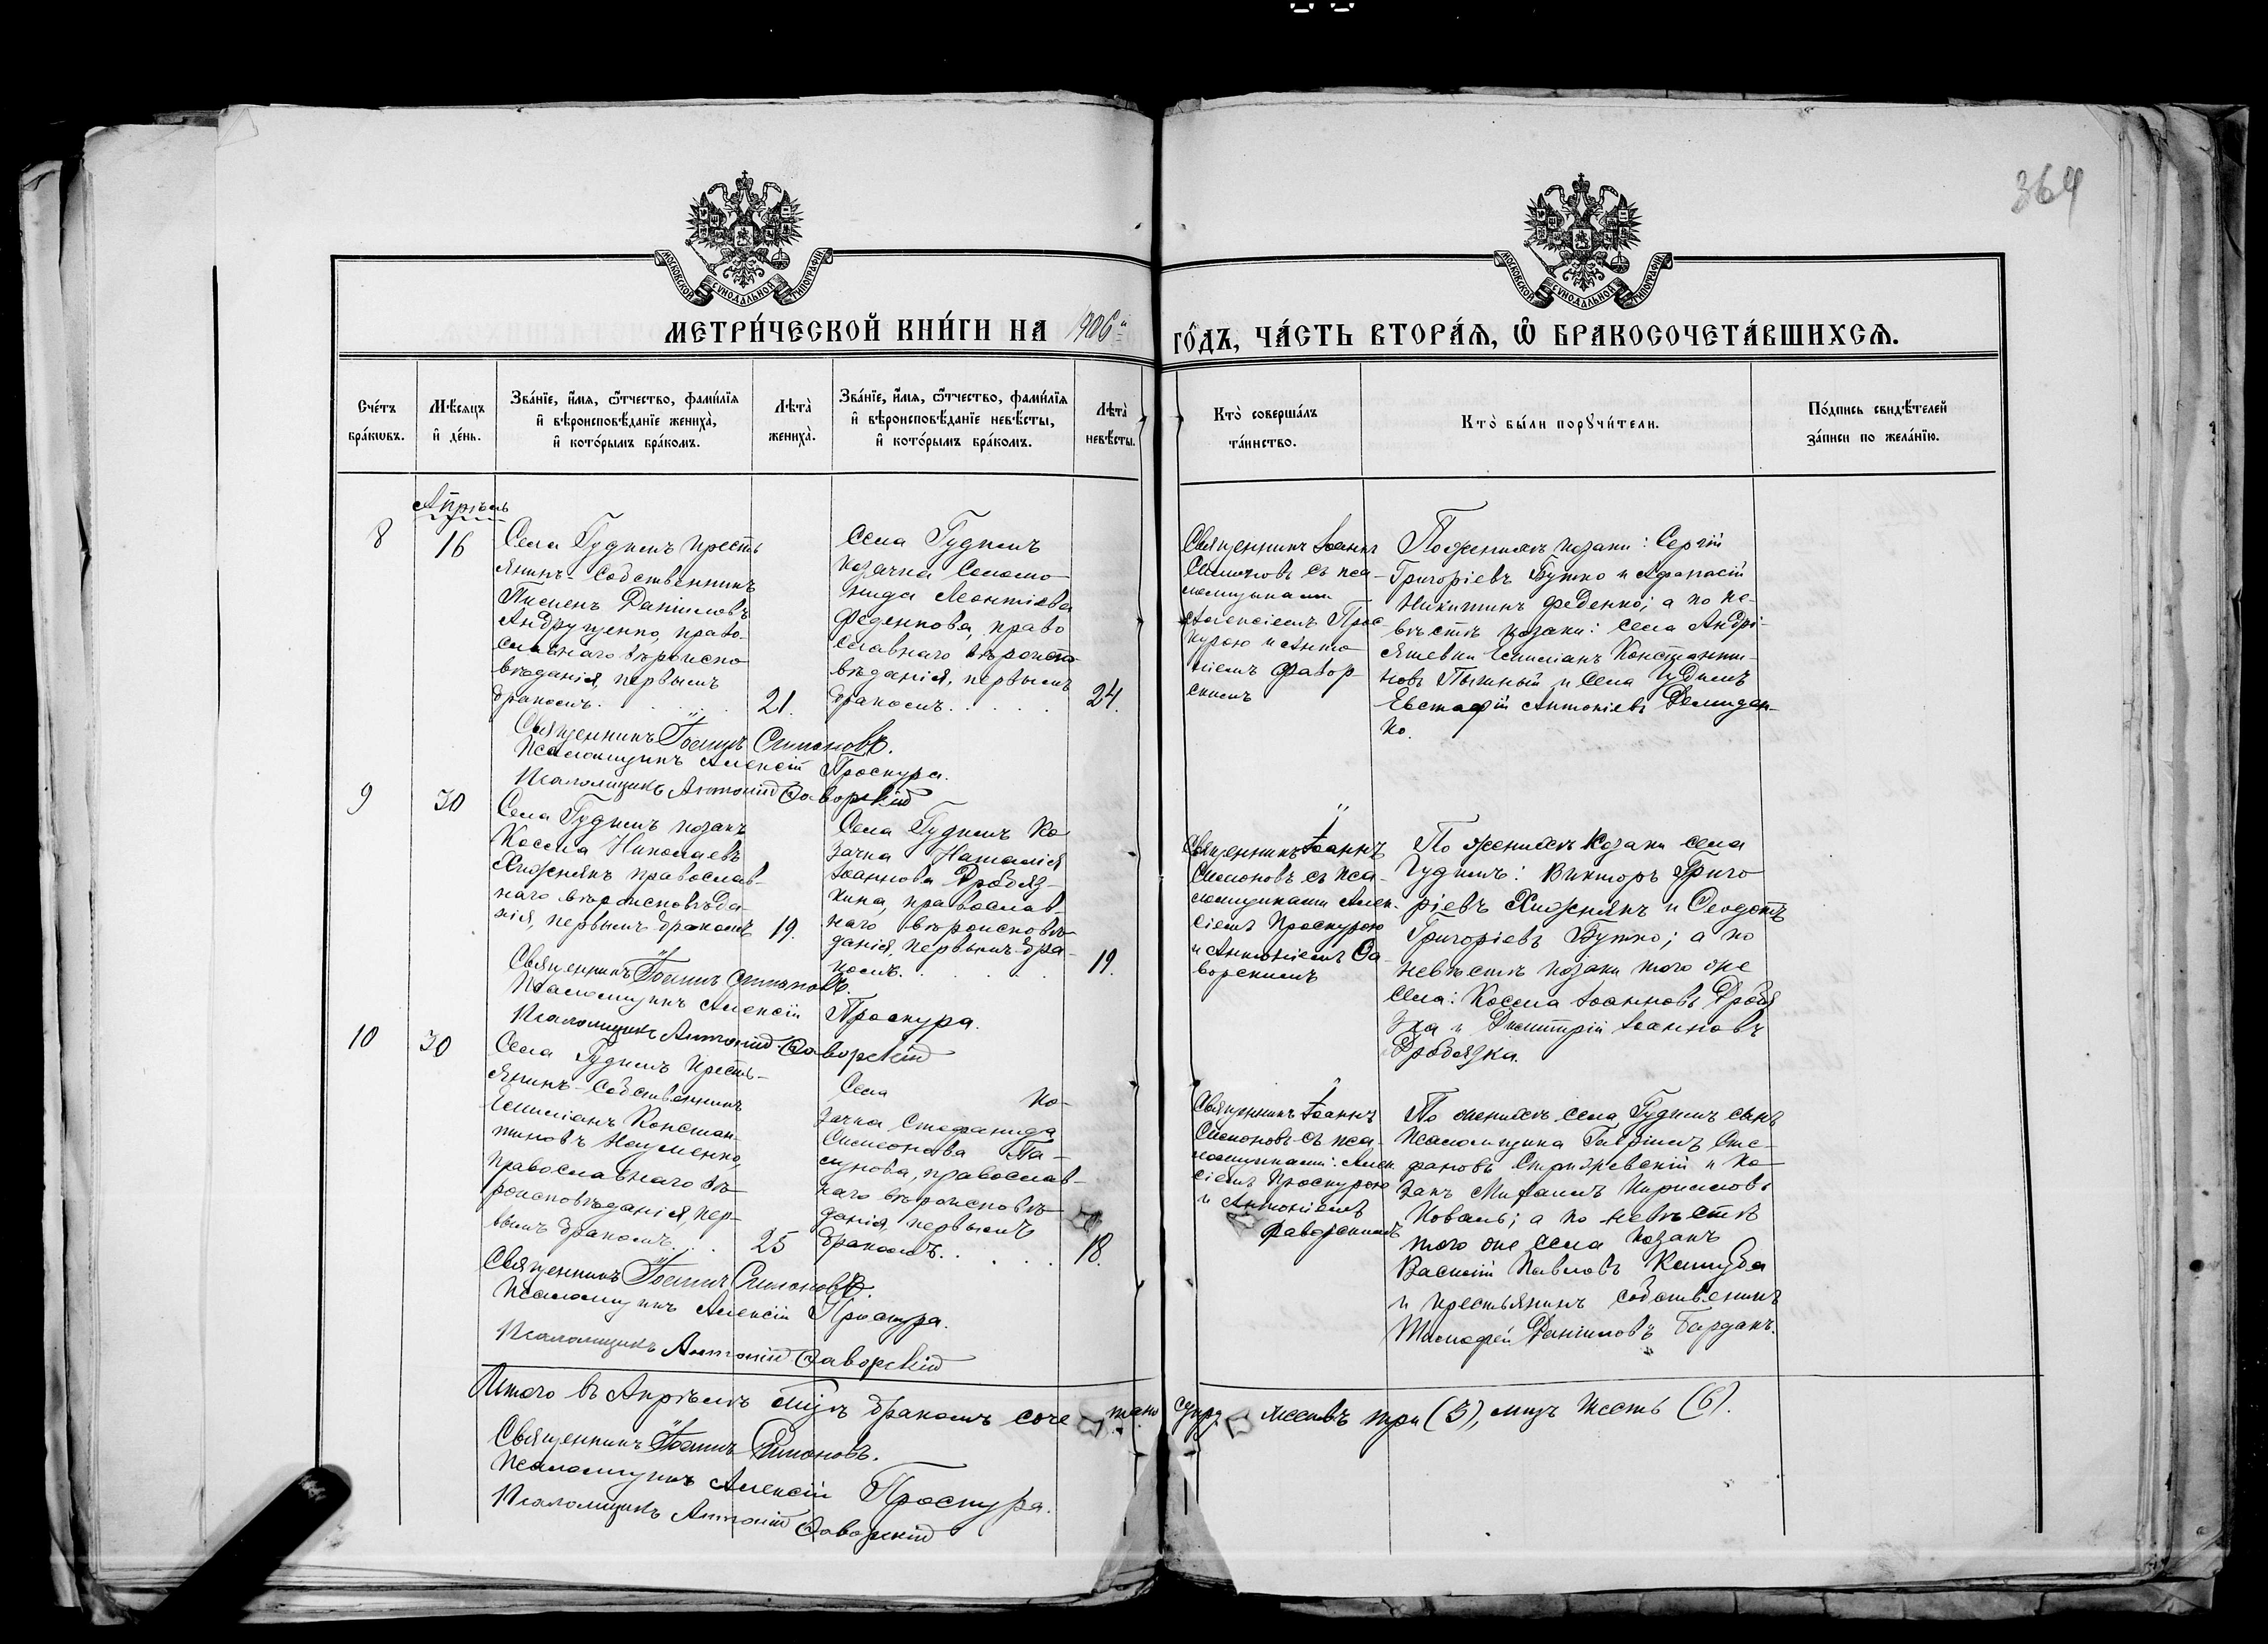 364
МОСКОВСКОЙ СѴНОДАЛЬНОЙ ТИПОГРАФІИ
МОСКОВСКОЙ СѴНОДАЛЬНОЙ ТИПОГРАФІИ
МЕТРИ́ЧЕСКОЙ КНИ́ГИ НА 1906й ГО́ДЪ, ЧА́СТЬ ВТОРА́Ѧ, Ѽ БРАКОСОЧЕТА́ВШИХСѦ.
Сче́тъ
бра́кѡвъ.
Мѣ́сѧцъ
и҆ де́нь.
Зва́нїе, и҆́мѧ, ѻ҆́тчество, фами́лїѧ
и҆ вѣроисповѣ́данїе жениха̀,
и҆ кото́рымъ бра́комъ.
Лѣта̀
жениха̀.
Зва́нїе, и҆́мѧ, ѻ҆́тчество, фами́лїѧ
и҆ вѣроисповѣ́данїе невѣ́сты,
и҆ кото́рымъ бра́комъ.
Лѣта̀
невѣ́сты.
Кто̀ соверша́лъ
та́инство.
Кто̀ бы́ли порꙋчи́тели.
По́дпись свидѣ́телей
за́писи по жела́нїю.
Апрѣль
8
16
Села Гудимъ кресть
янинъ-собственникъ
Пименъ Даніиловъ
Андрущенко, право-
славнаго вѣроиспо
вѣданія, первымъ
бракомъ.
21.
Села Гудимъ
козачка Соломо-
нида Леонтіева
Феденкова, право
славнаго вѣроиспо
вѣданія, первымъ
бракомъ.
24.
Священникъ Іоаннъ
Симоновъ съ пса-
ломщиками
Алексіемъ Прос-
курою и Анто
ніемъ Фавор
скимъ
По женихѣ козаки: Сергій
Григоріевъ Бутко и Афанасій
Никитинъ Феденко; а по не-
вѣстѣ козаки: села Андрі-
яшевки Емиліанъ Константи-
новъ и села Гудимъ
Евстафій Антоніевъ Демиден-
ко.
Священникъ Іоаннъ Симоновъ.
Псаломщикъ Алексій Проскура.
Псаломщикъ Антоній Ѳаворскій
9
30
Села Гудимъ козакъ
Косма Николаевъ
Хижнякъ православ-
наго вѣроисповѣда-
нія, первымъ бракомъ
19.
Села Гудимъ ко
зачка Наталія
Іоаннова Дробяз-
кина, православ-
наго вѣроисповѣ-
данія, первымъ бра-
комъ.
19.
Священникъ Іоаннъ
Симоновъ съ пса-
ломщиками Алек-
сіемъ Проскурою
и Антоніемъ Ѳа-
ворскимъ
По женихѣ козаки села
Гудимъ: Викторъ Григо
ріевъ Хижнякъ и Ѳеодотъ
Григоріевъ Бутко; а по
невѣстѣ козаки того же
села: Косма Іоанновъ Дробя
зка и Димитрій Іоанновъ
Дробязка.
Священникъ Іоаннъ Симоновъ.
Псаломщикъ Алексій Проскура.
Псаломщикъ Антоній Ѳаворскій
10
30
Села Гудимъ кресть-
янинъ-собственникъ
Емиліанъ Констан-
тиновъ Науменко,
православнаго вѣ-
роисповѣданія, пер-
вымъ бракомъ.
25
Села ко-
зачка Стефанида
Симеонова Па-
сунова, православ-
наго вѣроисповѣ-
данія, первымъ
бракомъ.
18.
Священникъ Іоаннъ
Симоновъ съ пса-
ломщиками: Алек-
сіемъ Проскурою
и Антоніемъ
Фаворскимъ
По женихѣ села Гудимъ сынъ
псаломщика Гавріилъ Сте-
фановъ и ко-
закъ Михаилъ Кирилловъ
Коваль; а по невѣстѣ
того же села козакъ
Василій Павловъ
и крестьянинъ собственникъ
Тимофей Даніиловъ Барданъ.
Священникъ Іоаннъ Симоновъ.
Псаломщикъ Алексій Проскура.
Псаломщикъ Антоній Ѳаворскій
Итого въ Апрѣлѣ мцѣ бракомъ соче-тано супру-жествъ три (3), лицъ шесть (6).
Священникъ Іоаннъ Симоновъ.
Псаломщикъ Алексій Проскура.
Псаломщикъ Антоній Ѳаворскій